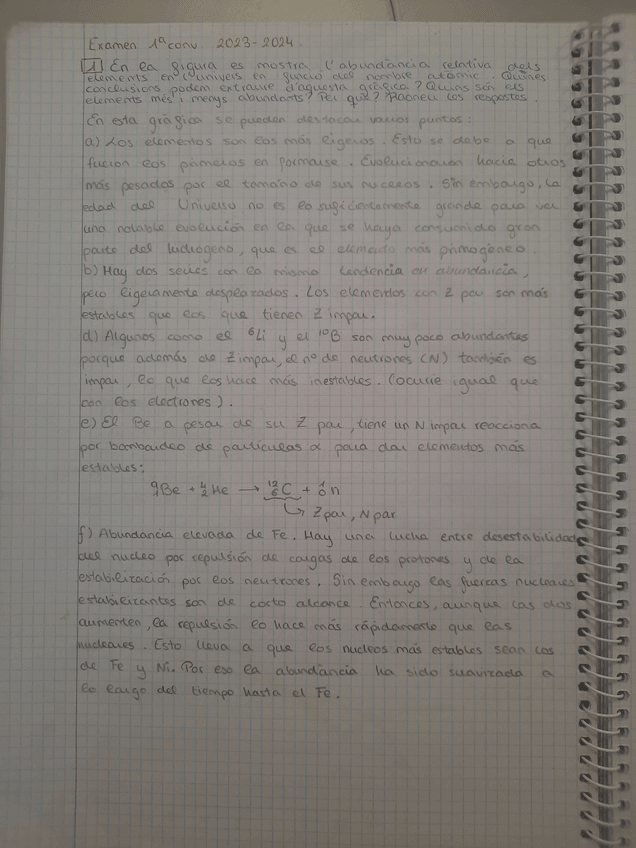 Examen 1ª conv 2023-2024.
1 En la figura es mostra l'abundància relativa dels
elements en l'univers en funció del nombre atòmic. Quines
conclusions podem extraure d'aquesta gràfica? Quins són els
elements més i menys abundants? Per què? Raoneu les respostes.
En esta gráfica se pueden destacar varios puntos:
a) Los elementos son los más ligeros. Esto se debe a que
fueron los primeros en formarse. Evolucionaron hacia otros
más pesados por el tamaño de sus nucleos. Sin embargo, la
edad del Universo no es lo suficientemente grande para ver
una notable evolución en la que se haya consumido gran
parte del hidrógeno, que es el elemento más primogéneo.
b) Hay dos series con la misma tendencia en abundancia,
pero ligeramente desplazados. Los elementos con Z par son más
estables que los que tienen Z impar.
d) Algunos como el ⁶Li y el ¹⁰B son muy poco abundantes
porque además de Z impar, el nº de neutrones (N) también es
impar, lo que los hace más inestables. (ocurre igual que
con los electrones).
e) El Be a pesar de su Z par, tiene un N impar reacciona
por bombardeo de partículas α para dar elementos más
estables:
⁹₄Be + ⁴₂He → ¹²₆C + ¹₀n
↳ Z par, N par
f) Abundancia elevada de Fe. Hay una lucha entre desestabilidad
del nucleo por repulsión de cargas de los protones y de la
estabilización por los neutrones. Sin embargo las fuerzas nucleares
estabilizantes son de corto alcance. Entonces, aunque las dos
aumenten, la repulsión lo hace más rápidamente que las
nucleares. Esto lleva a que los nucleos más estables sean los
de Fe y Ni. Por eso la abundancia ha sido suavizada a
lo largo del tiempo hasta el Fe.